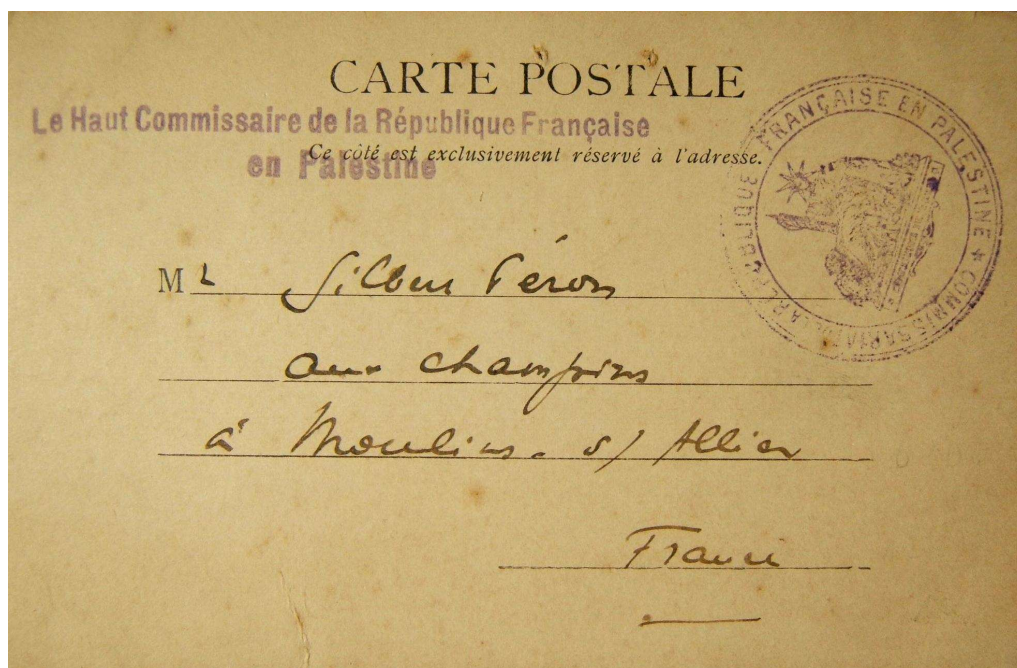 CARTE POSTALE
Le Haut Commissaire de la République Française
en Palestine
Ce côté est exclusivement réservé à l'adresse.
COMMISSARIAT DE LA RÉPUBLIQUE FRANÇAISE EN PALESTINE
M
aux champins
à Moulins. s/ Allier
France